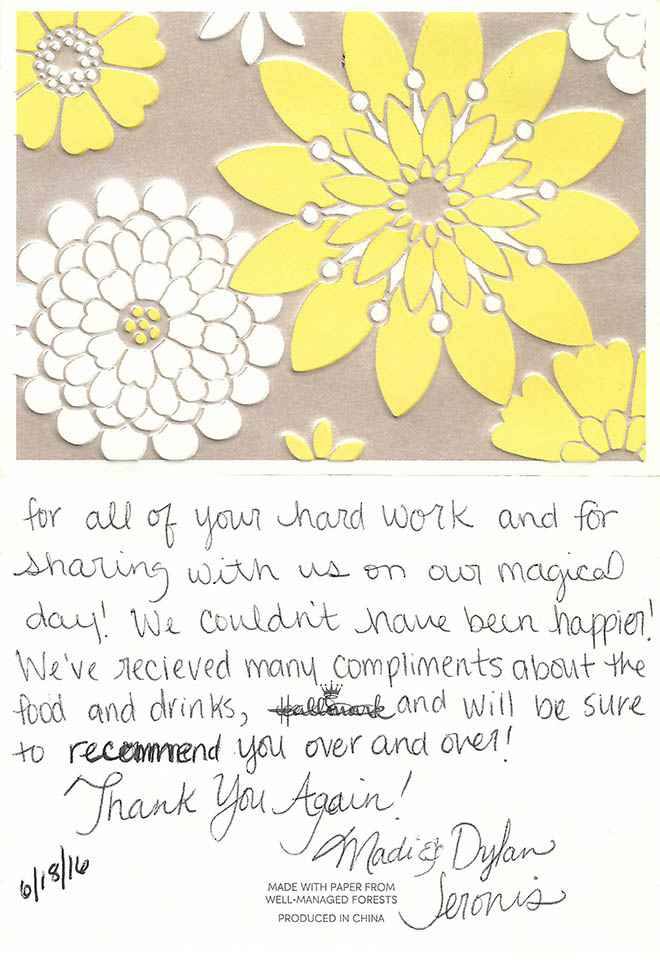 for all of your hard work and for
sharing with us on our magical
day! We couldn't have been happier!
We've recieved many compliments about the
food and drinks, Hallmark and will be sure
to recommend you over and over!
Thank You Again!
Madi & Dylan
Jeronis
6/18/16
MADE WITH PAPER FROM
WELL-MANAGED FORESTS
PRODUCED IN CHINA